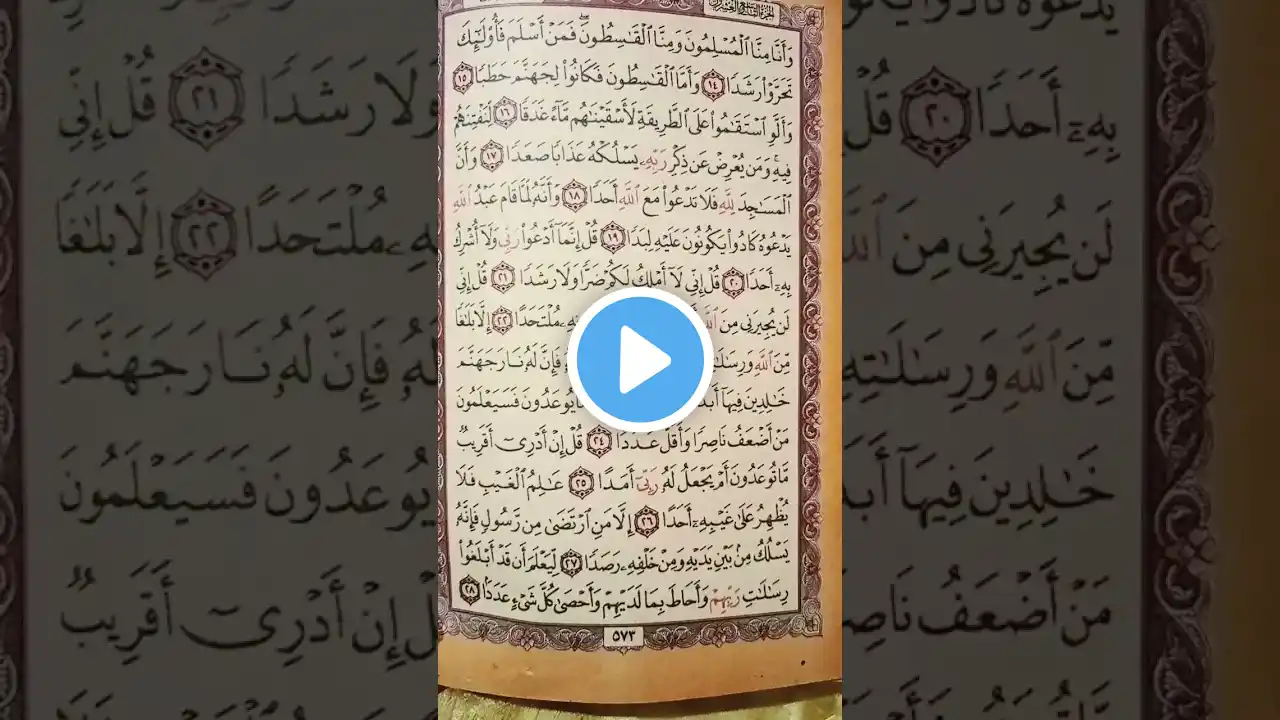 الجزء التاسع والعشرون
وَأَنَّا مِنَّا ٱلْمُسْلِمُونَ وَمِنَّا ٱلْقَٰسِطُونَۖ فَمَنْ أَسْلَمَ فَأُو۟لَٰٓئِكَ
تَحَرَّوْا۟ رَشَدًا ١٤ وَأَمَّا ٱلْقَٰسِطُونَ فَكَانُوا۟ لِجَهَنَّمَ حَطَبًا ١٥
وَأَلَّوِ ٱسْتَقَٰمُوا۟ عَلَى ٱلطَّرِيقَةِ لَأَسْقَيْنَٰهُم مَّآءً غَدَقًا ١٦ لِّنَفْتِنَهُمْ
فِيهِۚ وَمَن يُعْرِضْ عَن ذِكْرِ رَبِّهِۦ يَسْلُكْهُ عَذَابًا صَعَدًا ١٧ وَأَنَّ
ٱلْمَسَٰجِدَ لِلَّهِ فَلَا تَدْعُوا۟ مَعَ ٱللَّهِ أَحَدًا ١٨ وَأَنَّهُۥ لَمَّا قَامَ عَبْدُ ٱللَّهِ
يَدْعُوهُ كَادُوا۟ يَكُونُونَ عَلَيْهِ لِبَدًا ١٩ قُلْ إِنَّمَآ أَدْعُوا۟ رَبِّى وَلَآ أُشْرِكُ
بِهِۦٓ أَحَدًا ٢٠ قُلْ إِنِّى لَآ أَمْلِكُ لَكُمْ ضَرًّا وَلَا رَشَدًا ٢١ قُلْ إِنِّى
لَن يُجِيرَنِى مِنَ ٱللَّهِ مُلْتَحَدًا ٢٢ إِلَّا بَلَٰغًا
مِّنَ ٱللَّهِ وَرِسَٰلَٰتِهِ فَإِنَّ لَهُۥ نَارَ جَهَنَّمَ
خَٰلِدِينَ فِيهَآ يُوعَدُونَ فَسَيَعْلَمُونَ
مَنْ أَضْعَفُ نَاصِرًا وَأَقَلُّ عَدَدًا ٢٤ قُلْ إِنْ أَدْرِىٓ أَقَرِيبٌ
مَّا تُوعَدُونَ أَمْ يَجْعَلُ لَهُۥ رَبِّىٓ أَمَدًا ٢٥ عَٰلِمُ ٱلْغَيْبِ فَلَا
يُظْهِرُ عَلَىٰ غَيْبِهِۦٓ أَحَدًا ٢٦ إِلَّا مَنِ ٱرْتَضَىٰ مِن رَّسُولٍ فَإِنَّهُۥ
يَسْلُكُ مِنۢ بَيْنِ يَدَيْهِ وَمِنْ خَلْفِهِۦ رَصَدًا ٢٧ لِّيَعْلَمَ أَن قَدْ أَبْلَغُوا۟
رِسَٰلَٰتِ رَبِّهِمْ وَأَحَاطَ بِمَا لَدَيْهِمْ وَأَحْصَىٰ كُلَّ شَىْءٍ عَدَدًۢا ٢٨
٥٧٣